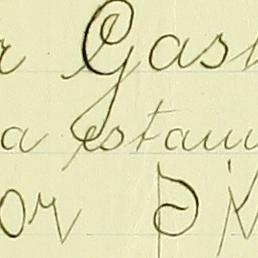 r Gast
a estam
or